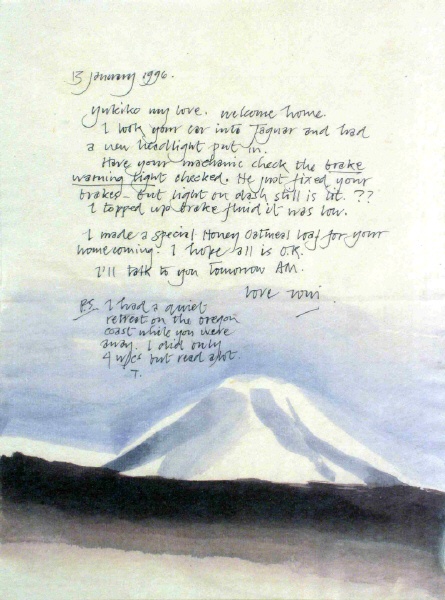 13 January 1996.
Yukiko my love. welcome home.
I took your car into Jaguar and had
a new headlight put in.
Have your mechanic check the brake
warning light checked. He just fixed your
brakes - but light on dash still is lit. ??
I topped up brake fluid it was low.
I made a special Honey Oatmeal loaf for your
homecoming. I hope all is O.K.
I'll talk to you tomorrow AM.
love
P.S. I had a quiet
retreat on the oregon
coast while you were
away. I did only
4 w/cs but read alot.
T.